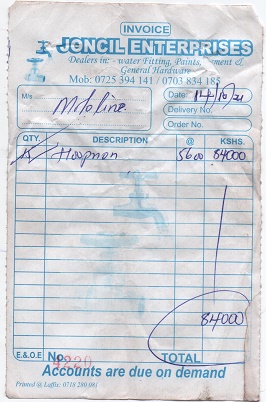 INVOICE
JONCIL ENTERPRISES
Dealers in: - water Fitting, Paints, ment &
General Hardware
Mob: 0725 394 141 / 0703 834 185
M/s
Date: 14/10/21
Delivery No.
Order No.
QTY. DESCRIPTION @ KSHS.
15 5600 84000
84000
E.&O.E No. 4220 TOTAL
Accounts are due on demand
Printed @ Laffix: 0718 280 081